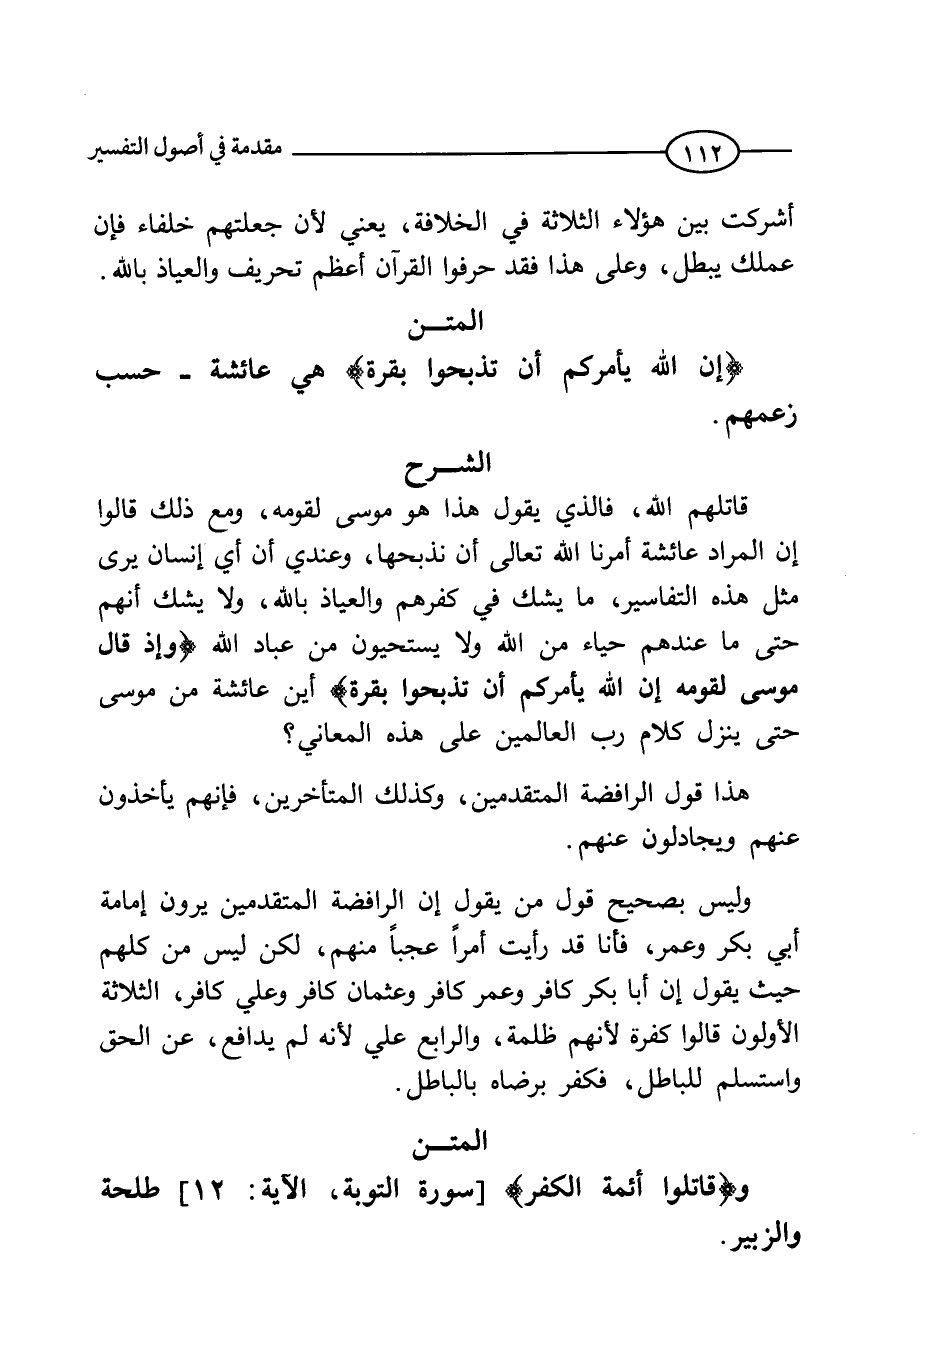 ١١٢ مقدمة في أصول التفسير
أشركت بين هؤلاء الثلاثة في الخلافة، يعني لأن جعلتهم خلفاء فإن
عملك يبطل، وعلى هذا فقد حرفوا القرآن أعظم تحريف والعياذ بالله.
المتـــن
﴿إن الله يأمركم أن تذبحوا بقرة﴾ هي عائشة ـ حسب
زعمهم.
الشـــرح
قاتلهم الله، فالذي يقول هذا هو موسى لقومه، ومع ذلك قالوا
إن المراد عائشة أمرنا الله تعالى أن نذبحها، وعندي أن أي إنسان يرى
مثل هذه التفاسير، ما يشك في كفرهم والعياذ بالله، ولا يشك أنهم
حتى ما عندهم حياء من الله ولا يستحيون من عباد الله ﴿وإذ قال
موسى لقومه إن الله يأمركم أن تذبحوا بقرة﴾ أين عائشة من موسى
حتى ينزل كلام رب العالمين على هذه المعاني؟
هذا قول الرافضة المتقدمين، وكذلك المتأخرين، فإنهم يأخذون
عنهم ويجادلون عنهم.
وليس بصحيح قول من يقول إن الرافضة المتقدمين يرون إمامة
أبي بكر وعمر، فأنا قد رأيت أمراً عجباً منهم، لكن ليس من كلهم
حيث يقول إن أبا بكر كافر وعمر كافر وعثمان كافر وعلي كافر، الثلاثة
الأولون قالوا كفرة لأنهم ظلمة، والرابع علي لأنه لم يدافع، عن الحق
واستسلم للباطل، فكفر برضاه بالباطل.
المتـــن
و﴿قاتلوا أئمة الكفر﴾ [سورة التوبة، الآية: ١٢] طلحة
والزبير.